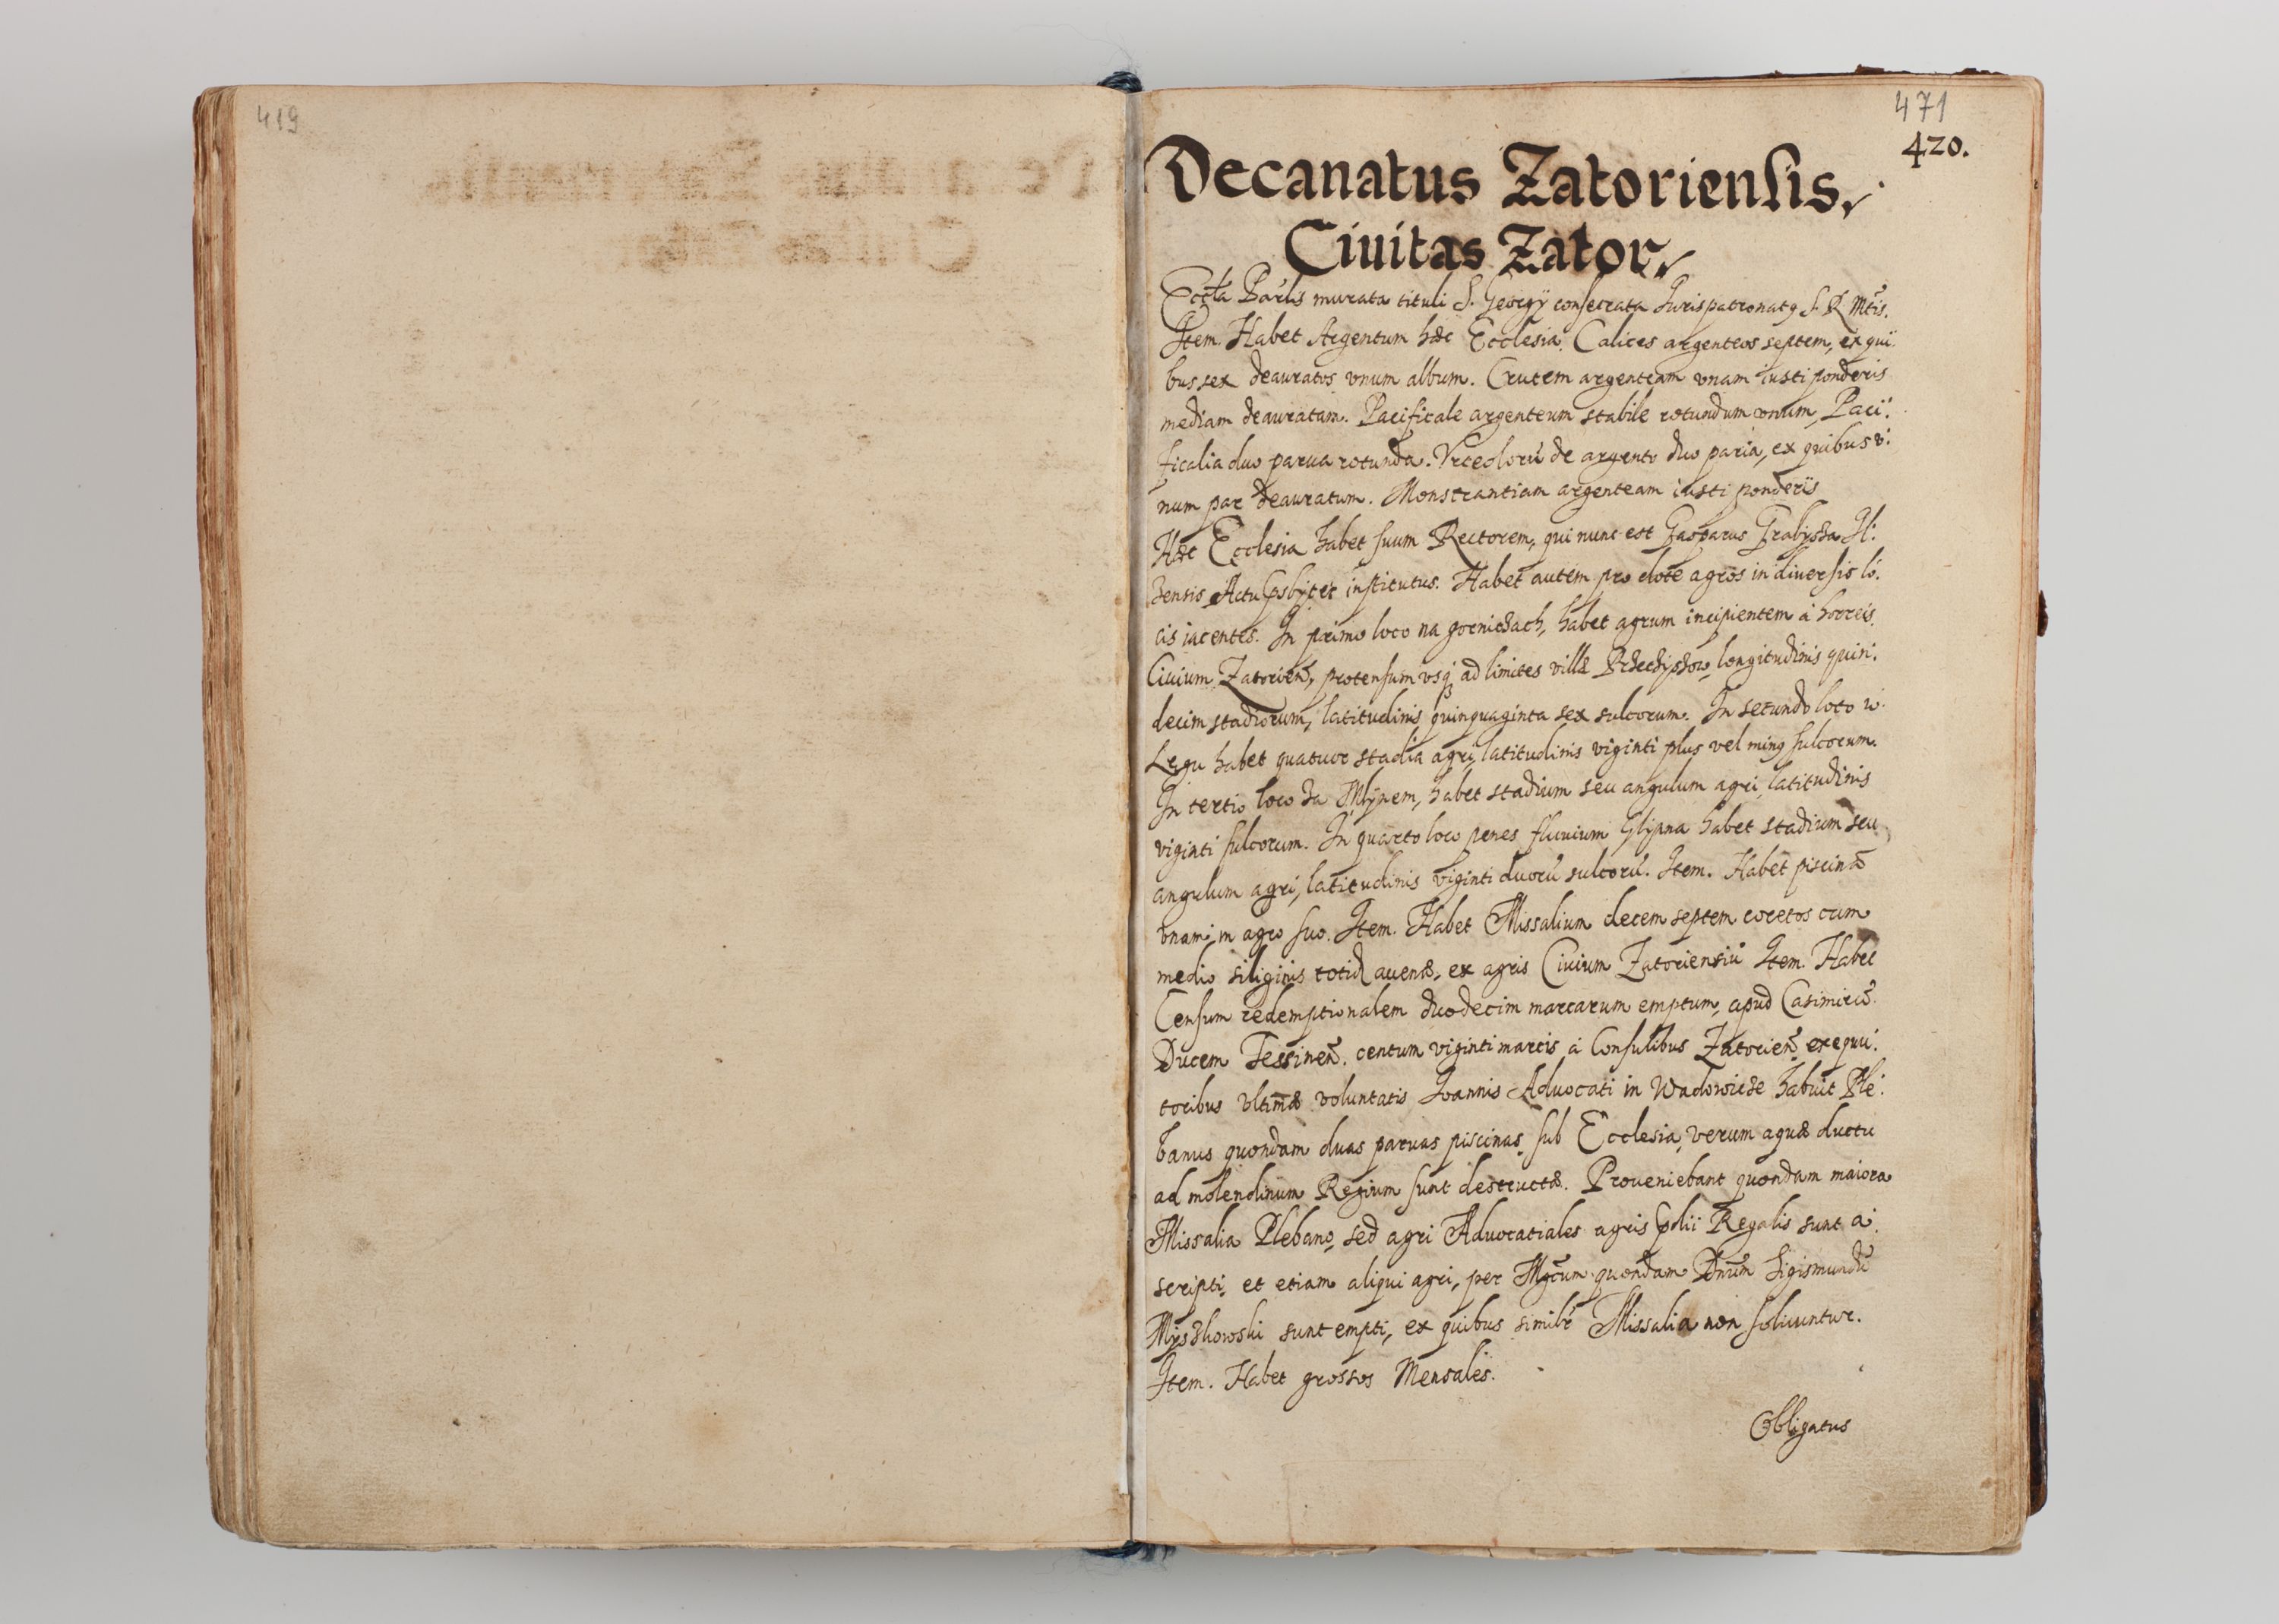 419
471
420.
Decanatus Zatoriensis.
Ciuitas Zator.
Eccła Parlis murata tituli S. Georgÿ consecrata Jurispatronatꝰ S. R. Mtis.
Item. Habet Argentum hæc Ecclesia. Calices argenteos septem, ex qui:
bus sex deauratos vnum album. Crucem argenteam vnam iusti ponderis
mediam deauratam. Pacificale argenteum stabile rotundum vnum, Paci:
ficalia duo parua rotunda. Vrceolorū de argento duo paria, ex quibus v:
num par deauratum. Monstrantiam argenteam iusti ponderis
Hæc Ecclesia habet suum Rectorem, qui nunc est Gasparus Grabyszka Il:
zensis Actu Psbyter institutus. Habet autem pro dote agros in diuersis lo:
cis iacentes. In primo loco na gorniczach, habet agrum incipientem à horreis
Ciuium Zatorien̄, protensum vsqꝫ ad limites villæ longitudinis quin:
decim stadiorum, latitudinis quinquaginta sex sulcorum. In secundo loco w
Łęgu habet quatuor stadia agri latitudinis viginti plus vel minꝰ sulcorum.
In tertio loco za Młynem, habet stadium seu angulum agri, latitudinis
viginti sulcorum. In quarto loco penes fluuium Glipna habet stadium seu
angulum agri, latitudinis viginti duorū sulcorū. Item. Habet piscinā
vnam in agro suo. Item. Habet Missalium decem septem coretos cum
medio siliginis totid auenæ, ex agris Ciuium Zatoriensiū Item. Habet
Censum redemptionalem duodecim marcarum emptum, apud Casimirū
Ducem Tessinen̄. centum viginti marcis à Consulibus Zatorien̄ exequu:
toribus vltimæ voluntatis Joannis Aduocati in Wadowicze habuit Ple:
banus quondam duas paruas piscinas sub Ecclesia, verum aquæ ductu
ad molendinum Regium sunt destructæ. Proueniebant quondam maiora
Missalia Plebano, sed agri Aduocatiales agris Prdii Regalis sunt a:
scripti, et etiam aliqui agri, per Mgcum quondam Dnum Sigismundū
Myszkowski sunt empti, ex quibus similr Missalia non soluuntur.
Item. Habet grossos Mensales.
Obligatus